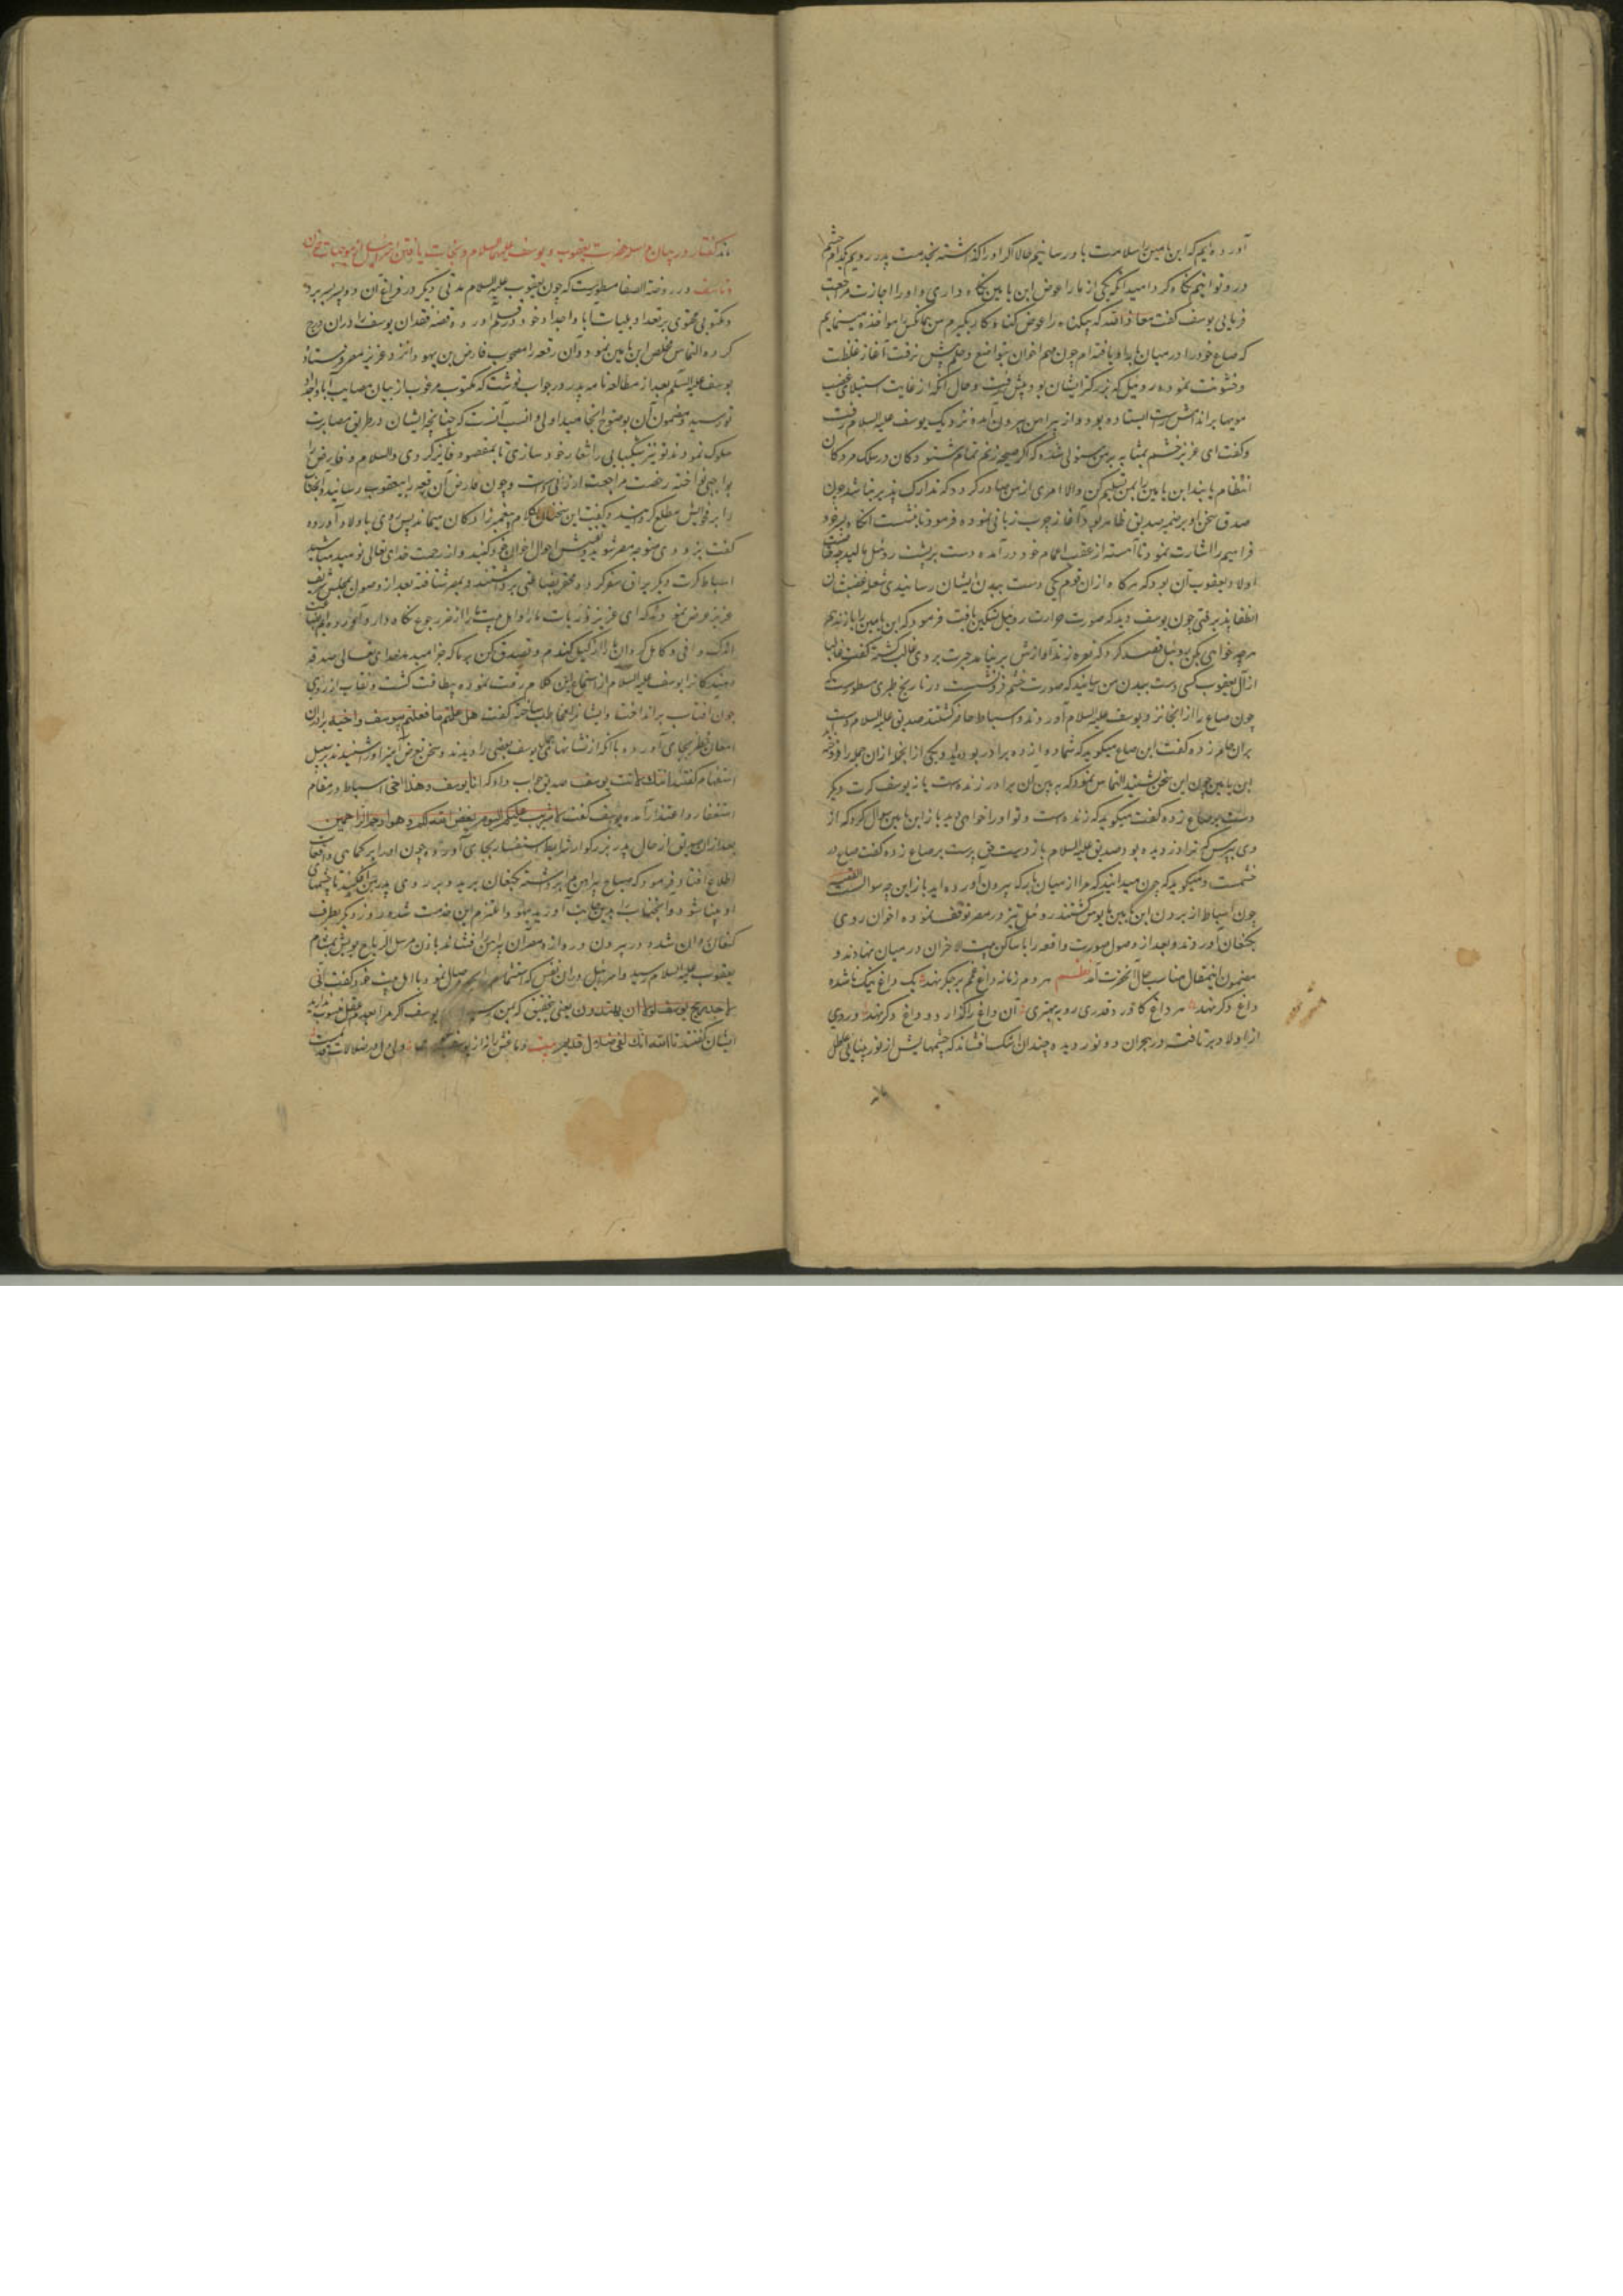 آورده‌ایم که ابن یامین را سلامت باو رسانیم حالا اگر او را گذاشته بخدمت پدر رویم بکدام چشم
در و توانیم نگاه کرد امید آنکه یکی از ما را عوض ابن یامین نگاه داری و او را اجازت مراجعت
فرمایی یوسف گفت معاذ الله که بیگناه را عوض گناه‌کار بگیرم من همان کس را مواخذه مینمایم
که صاع خود را در میان بار او یافته‌ام چون مهم اخوان بتواضع و حلم پیش نرفت آغاز غلظت
و خشونت نموده روبیل که بزرگتر ایشان بود پیش رفت و حال آنکه از غایت استیلای غضب
مویها بر اندامش راست ایستاده بود و از پیراهن بیرون آمده نزدیک یوسف علیه السلام رفت
و گفت ای عزیز خشم بمثابه بر من مستولی شده که اگر صیحه زنم تمام شنوندگان در سلک مردگان
انتظام یابند ابن یامین را بمن تسلیم کن والا امری از من صادر گردد که تدارک پذیر نباشد چون
صدق سخن او بر ضمیر صدیق ظاهر بود آغاز چرب زبانی نموده فرمود تا بنشست آنگاه پسر خود
فراییم را اشارت نمود تا آهسته از عقب اعمام خود درآمده دست بر پشت روبیل مالید چه
اولاد یعقوب آن بود که هرگاه از آن قوم یکی دست ببدن ایشان رسانیدی شعله غضبشان
انطفا پذیرفتی چون یوسف دید که صورت حرارت روبیل تسکین یافت فرمود که ابن یامین را باز ندهم
هر چه خواهی بکن روبیل قصد کرد که نعره زند آوازش بر نیامد حیرت بر وی غالب گشته گفت غالبا
از آل یعقوب کسی دست ببدن من رسانید که صورت خشم فرو نشست در تاریخ طبری مسطورست که
چون صاع را از آنجا نزد یوسف علیه السلام آوردند و اسباط حاضر گشتند صدیق علیه السلام دست
بران جام زده گفت این صاع میگوید که شما دوازده برادر بوده‌اید و یکی از آنجمله را فروخته
ابن یامین چون این سخن بشنید التماس نمود که بپرس آن برادر زنده است یا نه یوسف کرت دیگر
دست بر صاع زده گفت میگوید که زنده است و تو او را خواهی دید باز ابن یامین سوال کرد که از
وی بپرس که مرا دزدیده بود صدیق علیه السلام باز دست بر صاع زده گفت صاع در
خشمست و میگوید که چون میدانید که مرا از میان بار که بیرون آورده‌اید باز این چه سوالست القصه
چون اسباط از بردن ابن یامین مایوس گشتند روبیل نیز در مصر توقف نموده اخوان روی
بکنعان آوردند و بعد از وصول صورت واقعه را با ساکن بیت الاحزان در میان نهادند و
مضمون این مقال مناسب حال آنحضرت آمد نظم هر دم زمانه داغ غم بر جگر نهد یک داغ نیک ناشده
داغ دگر نهد هر داغ کاورد قدری رو به بهتری آن داغ را گذارد و داغ دگر نهد و روی
از اولاد برتافت در هجران دو نور دیده چندان اشک افشاند که چشمهایش از نور بینایی عاطل
ماند گفتار در بیان مراسله حضرت یعقوب و یوسف علیهما السلام و نجات یافتن اسرائیل از موجبات حزن
و تاسف در روضة الصفا مسطورست که چون یعقوب علیه السلام مدتی دیگر در فراق آن دو پسر بسر برد
مکتوبی محتوی بر تعداد بلیات آبا و اجداد خود در قلم آورد و قصه فقدان یوسف را در آن درج
کرده التماس مخلص ابن یامین نمود و آن رقعه را مصحوب فارض بن یهودا نزد عزیز مصر فرستاد
یوسف علیه السلام بعد از مطالعه نامه پدر در جواب نوشت که مکتوب مرغوب از بیان مصایب آبا و اجداد
تو رسید و مضمون آن بوضوح انجامید اولی و انسب آنست که چنانچه ایشان در طریق مصابرت
سلوک نمودند تو نیز شکیبایی را شعار خود سازی تا بمقصود فایز گردی والسلام و فارض را
نواخته رخصت مراجعت ارزانی داشت و چون فارض آن رقعه را بیعقوب رسانید
را بر خویش مطلع گردانید و گفت این سخنان بکلام پیغمبر زادگان میماند پس روی باولاد آورده
گفت بزودی متوجه مصر شوید و تفتیش احوال اخوان خود کنید و از رحمت خدای تعالی نومید مباشید
اسباط کرت دیگر یراق سفر کرده محقر بضاعتی برداشتند و بمصر شتافته بعد از وصول بمجلس شریف
عزیز عرض نمودند که ای عزیز را از ضرر جوع نگاه دار و آورده‌ایم بضاعت
اندک وافی و کامل گردان ما را از کیل گندم و تصدق کن بر ما که جزا میدهد خدای تعالی صدقه
دهندگان را یوسف علیه السلام از استماع این کلام رقت نموده بیطاقت گشت و نقاب از روی
چون آفتاب برانداخت و ایشان را مخاطب ساخته گفت هل علمتم ما فعلتم بیوسف واخیه برادران
امعان نظر بجای آورده با آنکه از نشانهای یوسف بعضی را دیدند و سخن تعرض آمیز او را شنیدند بر سبیل
استفهام گفتند أانک لانت یوسف صدیق جواب داد که انا یوسف وهذا اخی اسباط در مقام
استغفار و اعتذار آمده یوسف گفت لا تثریب علیکم الیوم یغفر الله لکم وهو ارحم الراحمین
بعد از آن صدیق از حال پدر بزرگوار شرایط استفسار بجای آورده چون او را بر کماهی واقعات
اطلاع افتاد فرمود که صباح پیراهن مرا برداشته بکنعان برید و بر روی پدر من افکنید تا چشمهای
او بینا شود و آنجناب را بدین جانب آورید یهودا ملتزم این خدمت شده روز دیگر بطرف
کنعان روان شد و در بیرون دروازه مصر آن پیراهن را افشاند باذن مرسل الریاح بویش بمشام
یعقوب علیه السلام رسید و اسرائیل در آن نفس که استشمام نمود با اهل بیت خود گفت انی
لاجد ریح یوسف لولا ان تفندون یعنی بتحقیق که من یوسف اگر مرا بعدم عقل منسوب ندارید
ایشان گفتند تا الله انک لفی ضلالک القدیم